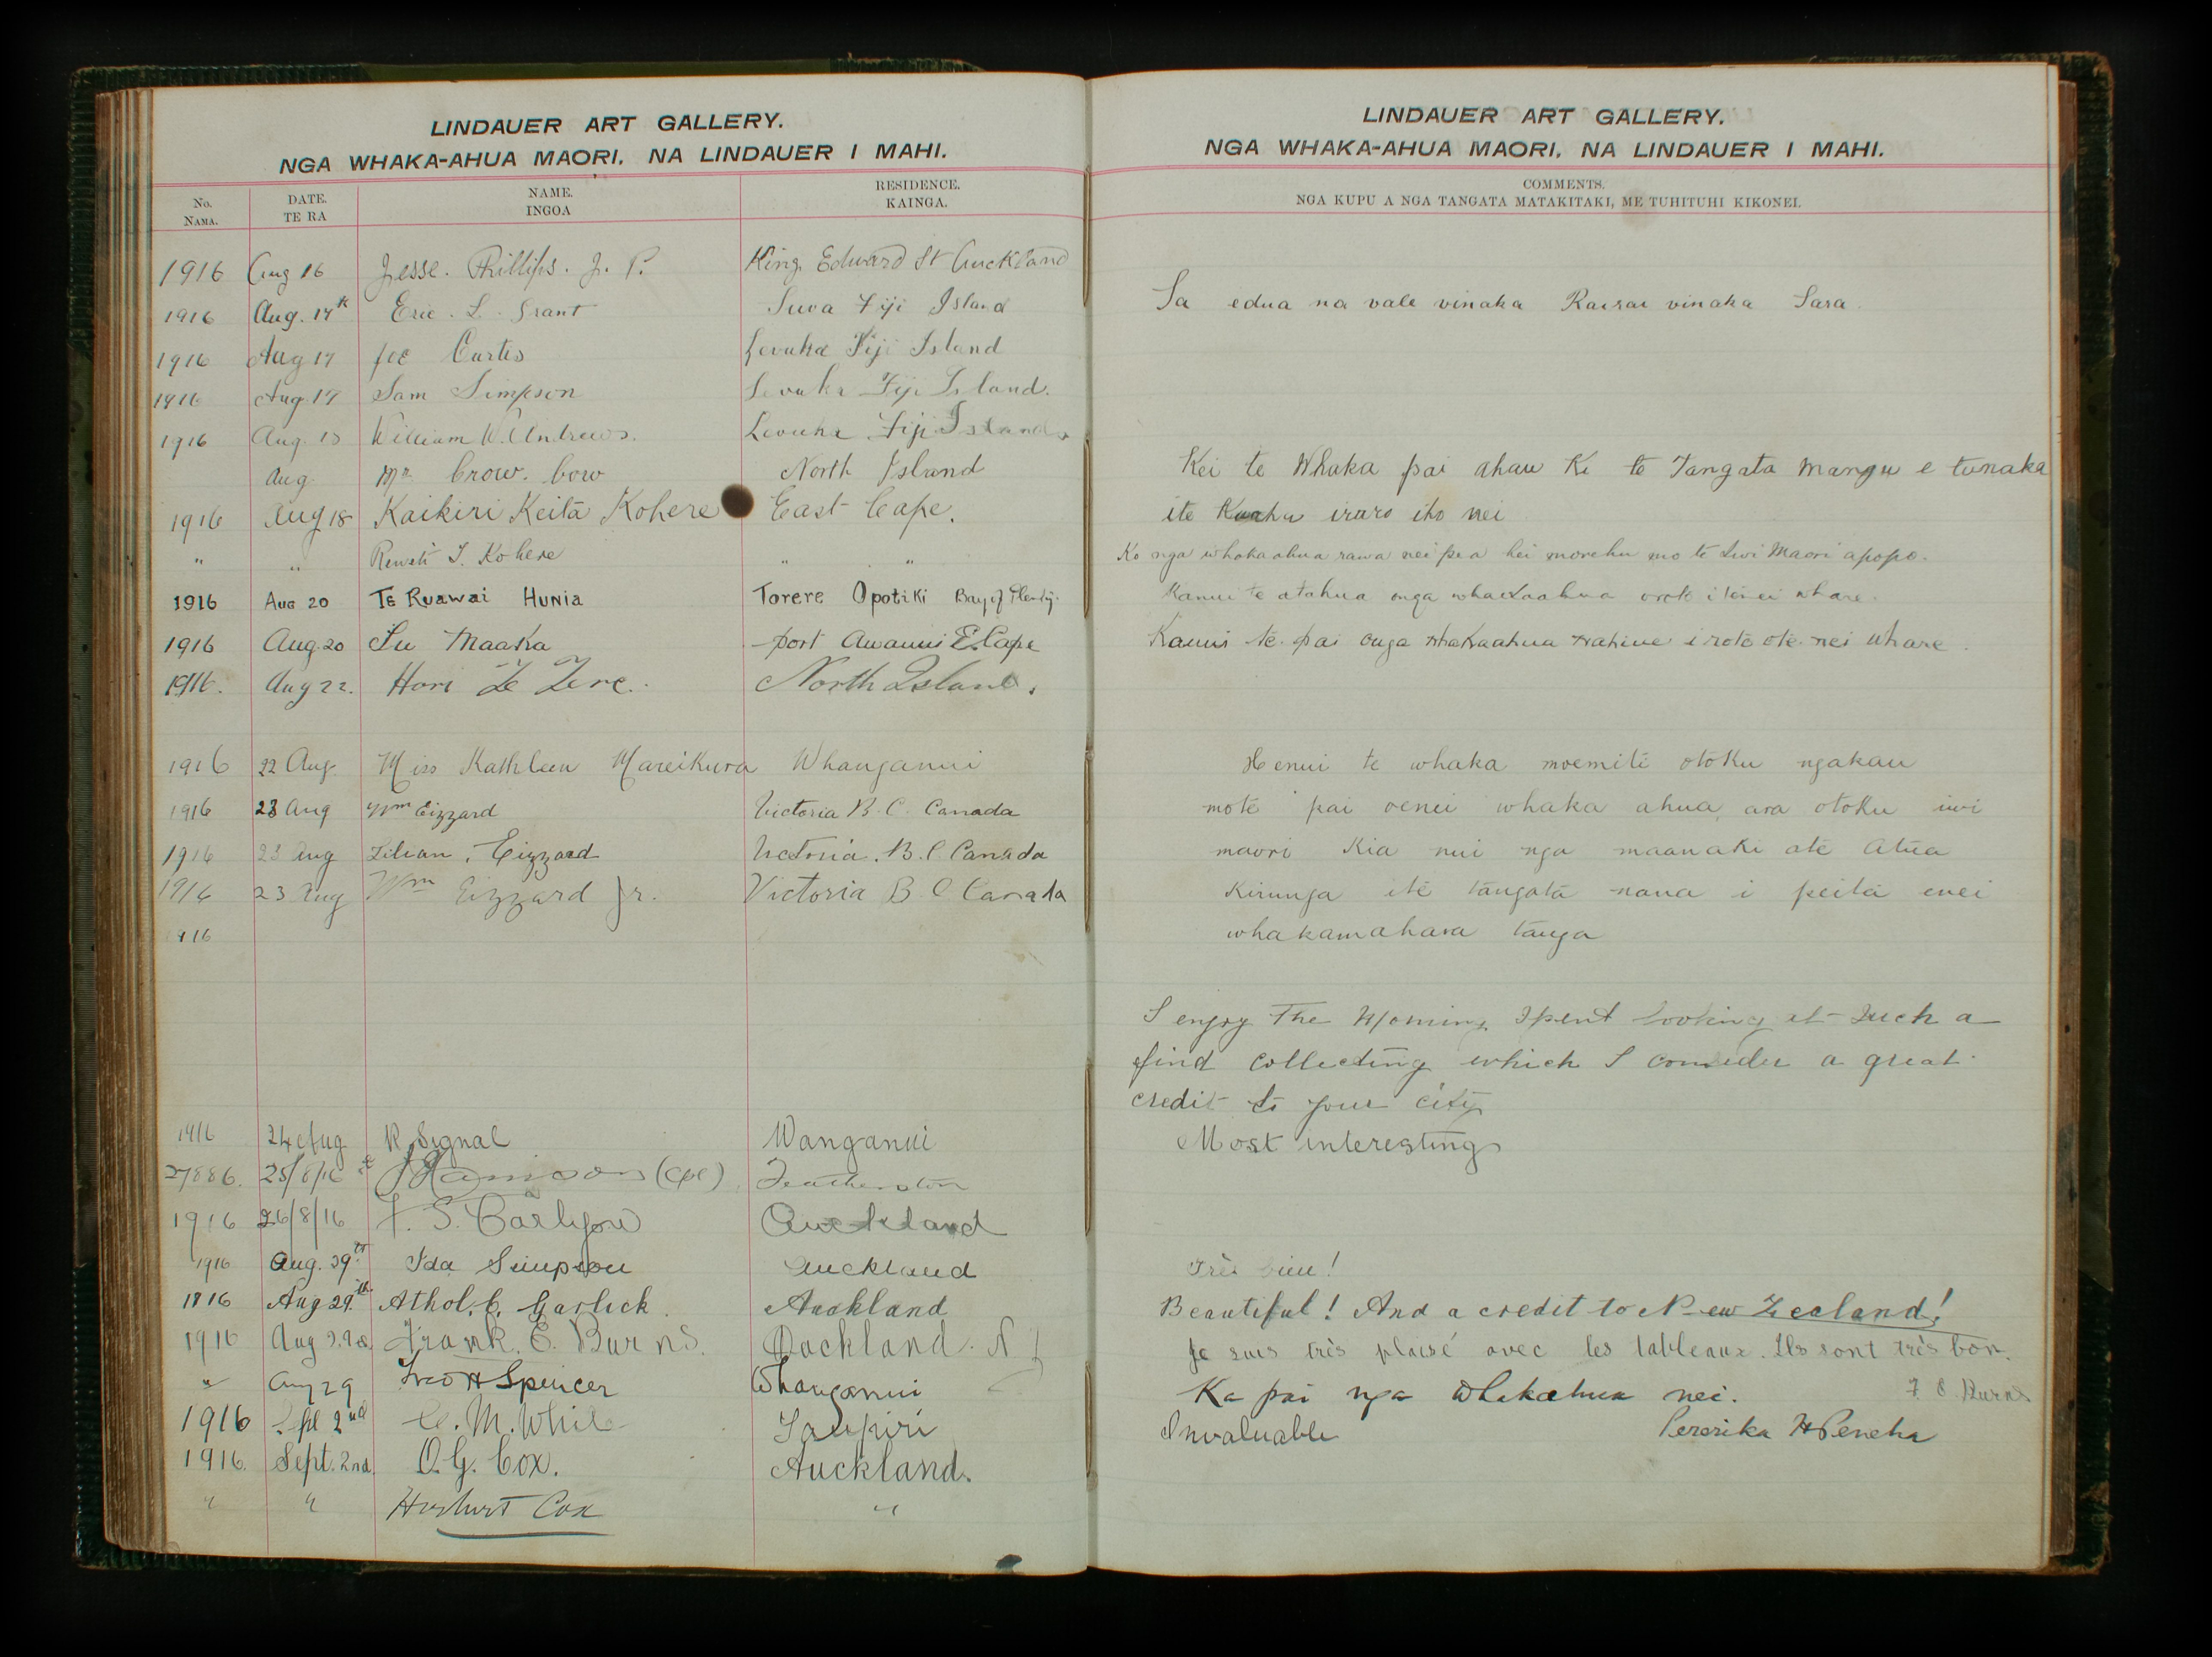 LINDAUER ART GALLERY.
NGA WHAKA-AHUA MAORI. NA LINDAUER I MAHI.
No. NAMA. DATE. TE RA NAME. INGOA RESIDENCE. KAINGA.
1916 Aug 16 Jesse. Phillips. J. P. King Edward St Auckland
1916 Aug. 17th Eric. L. Grant Suva Fiji Island
1916 Aug 17 Joe Curtis Levuka Fiji Island
1916 Aug 17 Sam Simpson Levuka Fiji Island.
1916 Aug. 18 William W. Andrews. Levuka Fiji Islands
Aug. Mr Crow. bow North Island
1916 Aug 18 Kaikiri Keita Kohere East Cape.
" " Reweti T. Kohere " "
1916 Aug 20 Te Ruawai Hunia Torere Opotiki Bay of Plenty.
1916 Aug. 20 Su Maaka port Awanui E. Cape
1916. Aug 22. Hori Te Tere. North Island.
1916 22 Aug Miss Kathleen Mareikura Whanganui
1916 23 Aug Wm Eizzard Victoria B. C. Canada
1916 23 Aug Lilian. Eizzard Victoria. B. C Canada
1916 23 Aug Wm Eizzard Jr. Victoria B C Canada
1916
1916 24 Aug R Signal Wanganui
27886. 25/8/16 (Cpl) Featherston
1916 26/8/16 Auckland
1916 Aug. 29th Ida Simpson Auckland
1916 Aug 29th Athol. C. Garlick. Auckland
1916 Aug 29 Frank. E. Burns. Auckland. N Z
" Aug 29 Fred H Spencer Whanganui
1916 Sept 2nd M. White Taupiri
1916. Sept. 2nd O. G. Cox. Auckland.
" " Herbert Cox "
LINDAUER ART GALLERY.
NGA WHAKA-AHUA MAORI. NA LINDAUER I MAHI.
COMMENTS.
NGA KUPU A NGA TANGATA MATAKITAKI, ME TUHITUHI KIKONEI.
Sa edua na vale vinaka Raisai vinaka Sara.
Kei te Whaka pai ahau Ki te Tangata mangu e tunaka
ite Kuaha iraro iho nei
Ko nga whakaahua rawa nei pea hei morehu mo te Iwi Maori apopo.
Kanui te atahua onga whakaahua oroto i tenei whare.
Kanui te pai onga whakaahua wahine i roto ote nei whare.
Henui te whaka moemiti otoku ngakau
mote pai oenei whaka ahua, ara otoku iwi
maori Kia nui nga maanaki ate Atua
Kirunga ite tangata nana i peita enei
whakamahara tanga
I enjoy The Morning Spent looking at Such a
find collecting which I consider a great
credit to your city
Most interesting
Très bien!
Beautiful! And a credit to New Zealand!
Je suis très plaisé avec les tableaux. Ils sont très bon.
F. E. Burns
Ka pai nga Whakahua nei.
Pererika H Peneha
Invaluable